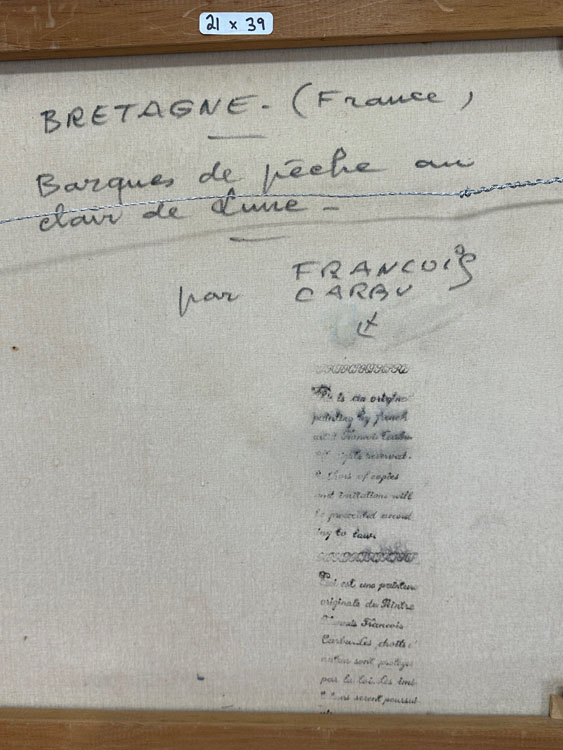 21 x 39
BRETAGNE - (France)
Barques de pêche au
clair de lune -
par FRANCOIS
CARBU
is an
painting by french
François
rights reserved.
of copies
and imitations will
be prosecuted accord
ing to law.
est une peinture
originale du Peintre
François
Les droits
sont
par la loi. Les imi
seront poursui